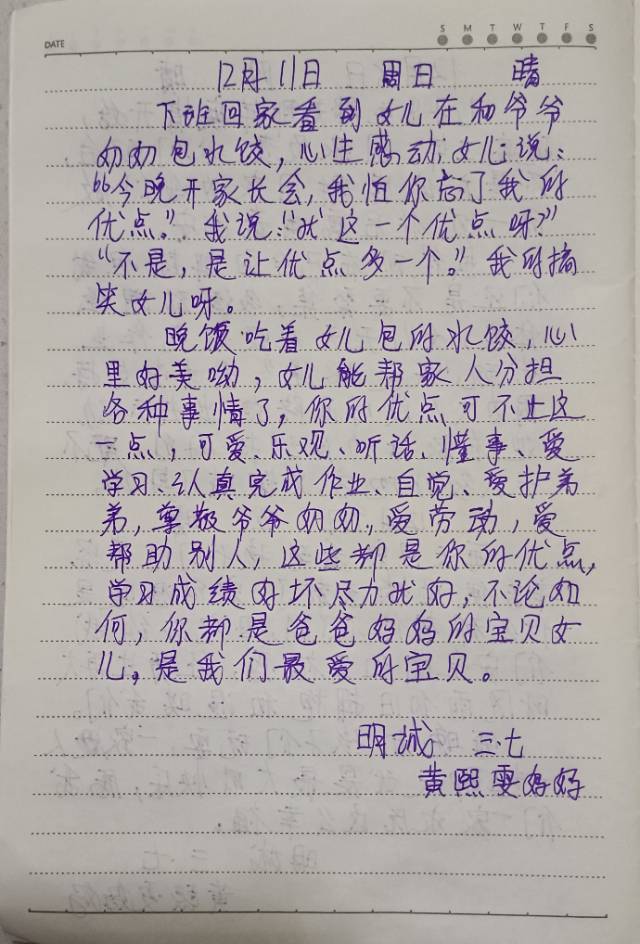 DATE
S M T W T F S
12月11日 周日 晴
下班回家看到女儿在和爷爷
奶奶包水饺，心生感动，女儿说：
“今晚开家长会，我怕你忘了我的
优点。”我说：“就这一个优点呀？”
“不是，是让优点多一个。”我的搞
笑女儿呀。
晚饭吃着女儿包的水饺，心
里好美呦，女儿能帮家人分担
各种事情了，你的优点可不止这
一点，可爱、乐观、听话、懂事、爱
学习、认真完成作业、自觉、爱护弟
弟，尊敬爷爷奶奶，爱劳动，爱
帮助别人，这些都是你的优点，
学习成绩好坏尽力就好，不论如
何，你都是爸爸妈妈的宝贝女
儿，是我们最爱的宝贝。
明诚 三.七
黄熙雯妈妈